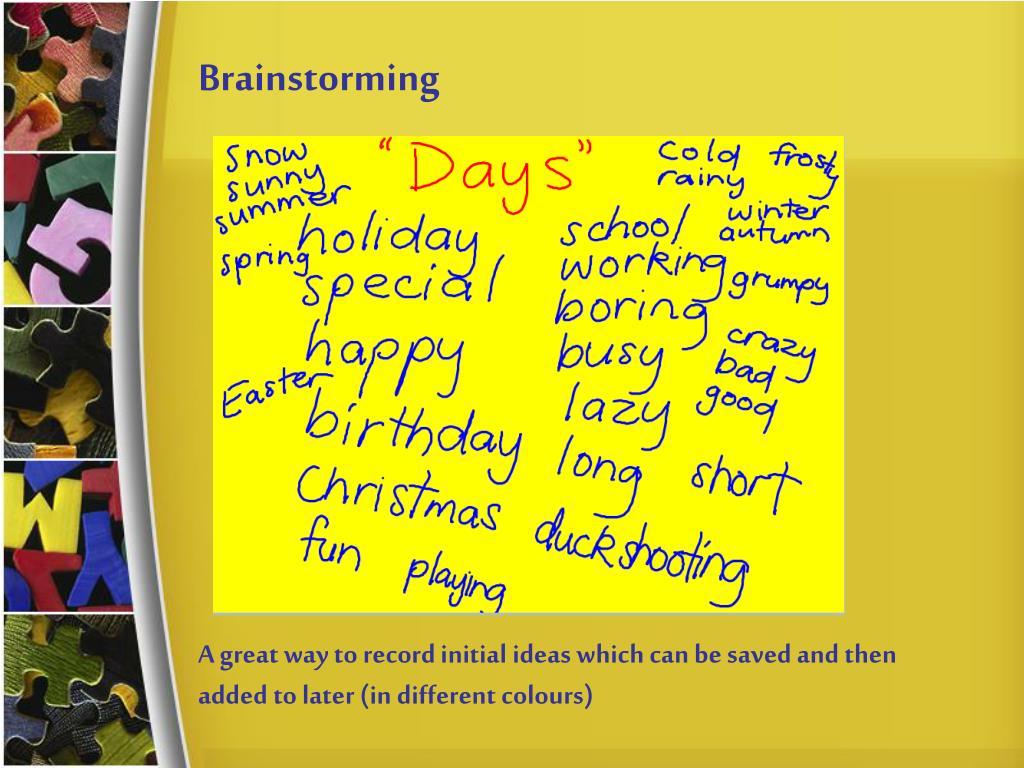 Brainstorming
"Days"
snow
sunny
summer
spring
holiday
special
happy
Easter
birthday
Christmas
fun
playing
cold frosty
rainy
school
winter
autumn
working
grumpy
boring
busy
crazy
bad
good
lazy
long short
duckshooting
A great way to record initial ideas which can be saved and then
added to later (in different colours)